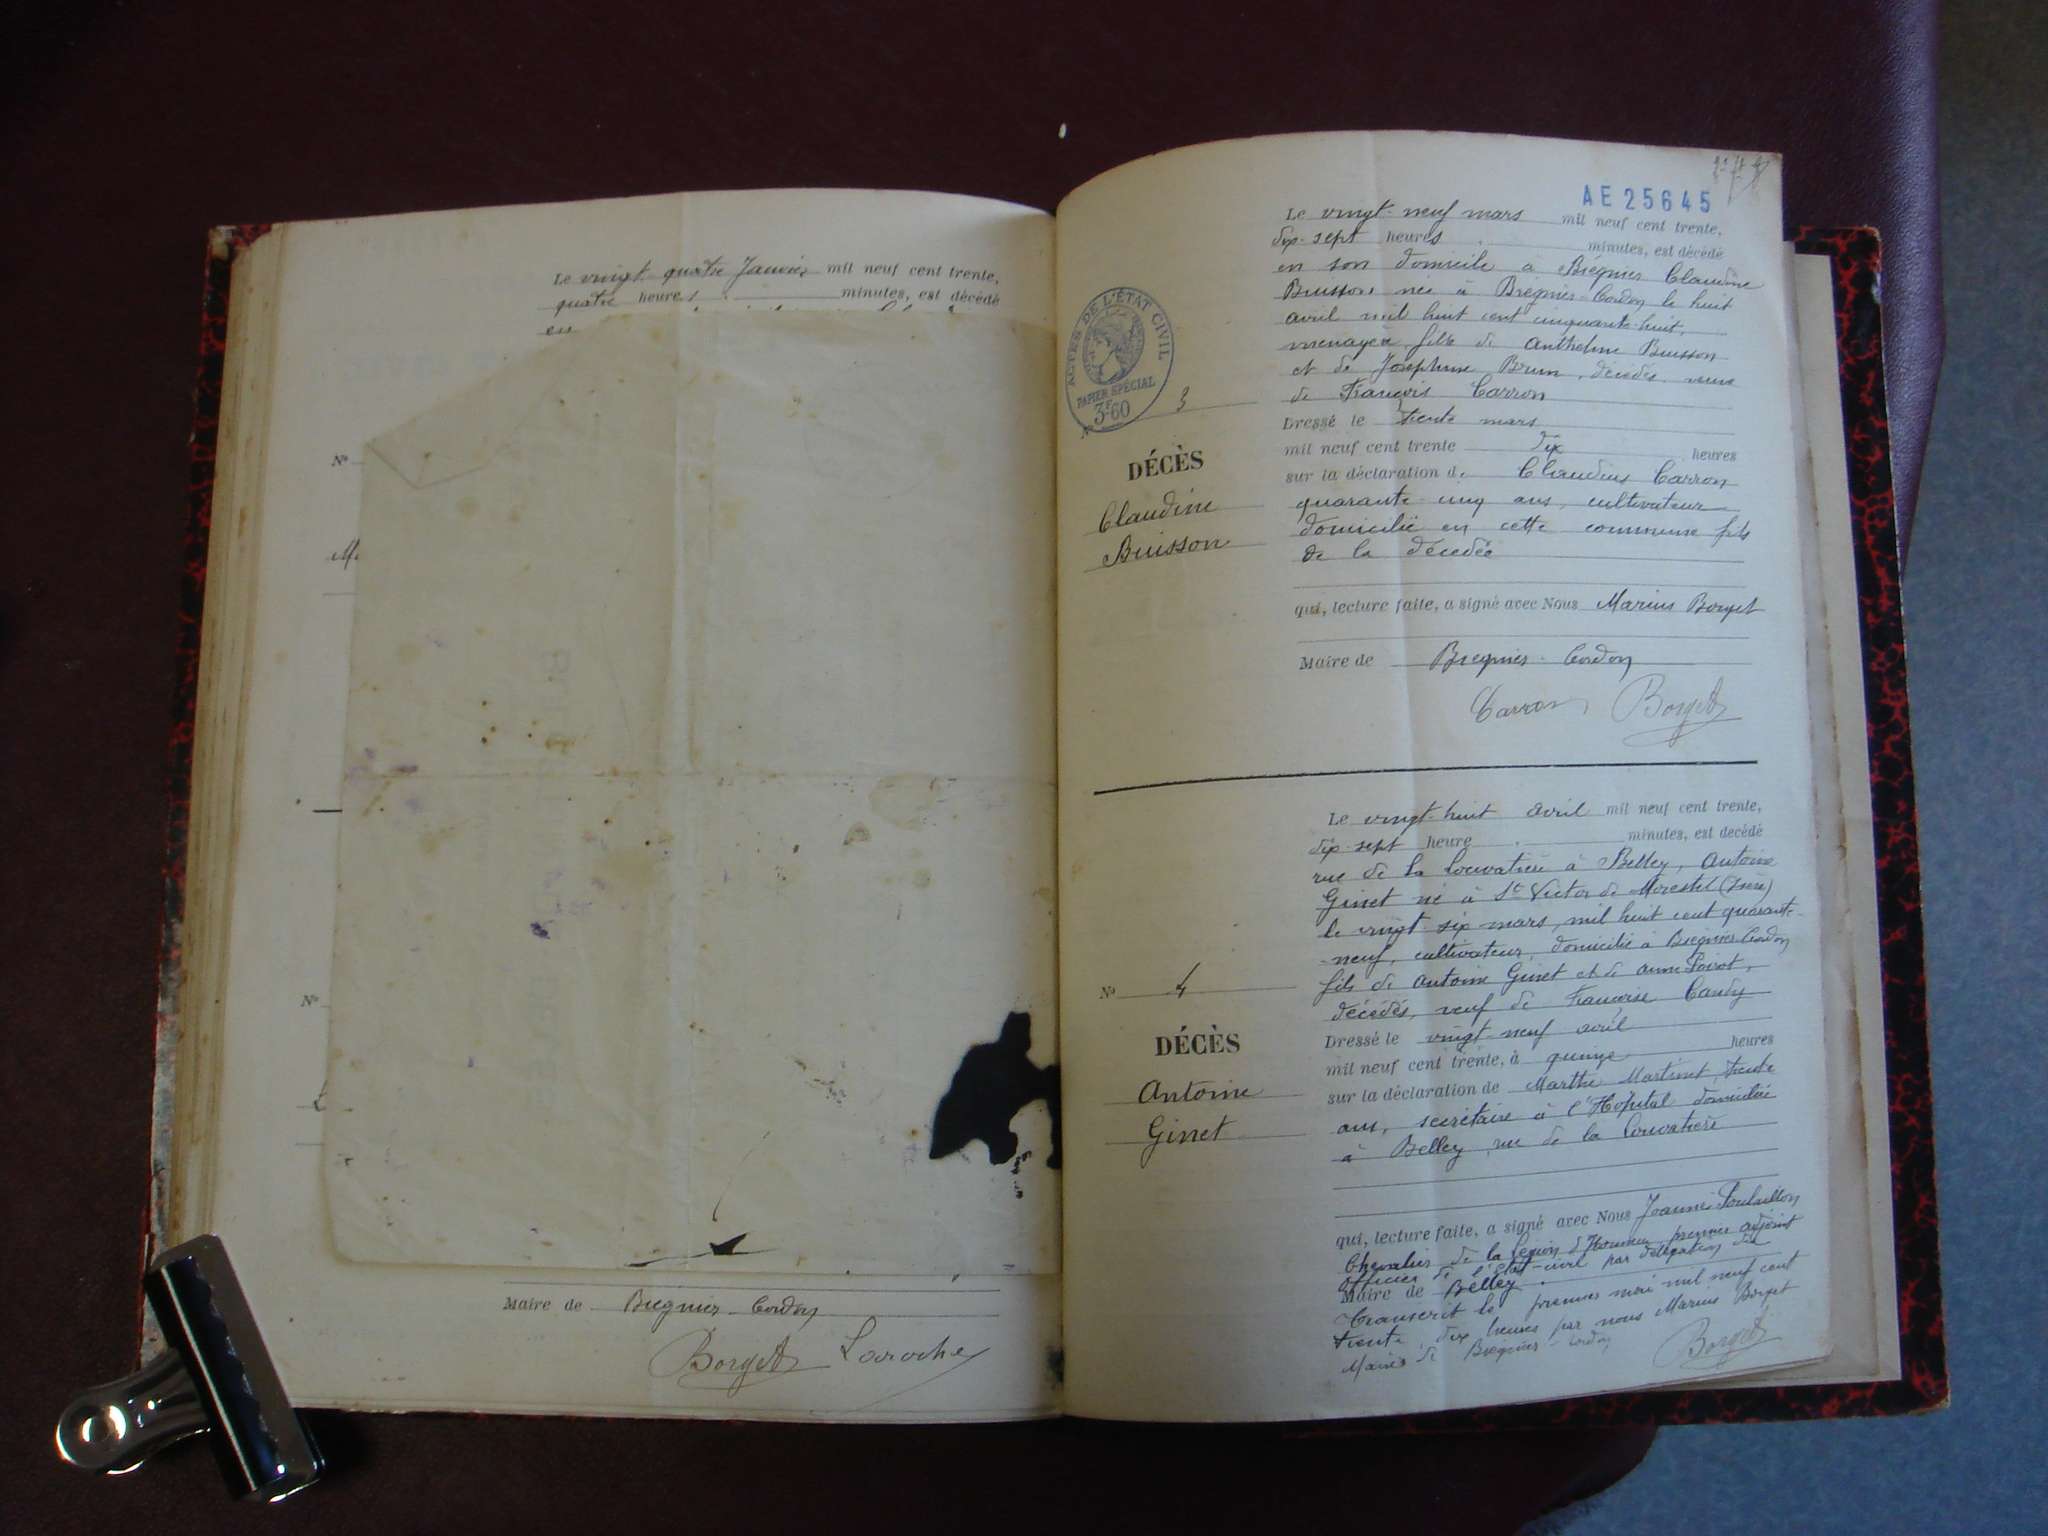 Le vingt quatre Janvier mil neuf cent trente,
quatre heures minutes, est décédé
en
N°
M.
N°
Maire de Bregnier-Cordon
Borget Laroche
AE 25645
ACTES DE L'ÉTAT CIVIL
PAPIER SPÉCIAL
3F60
N° 3
DÉCÈS
Claudine
Buisson
Le vingt-neuf mars mil neuf cent trente,
dix-sept heures minutes, est décédé
en son domicile à Brégnier Claudine
Buisson née à Bregnier-Cordon le huit
avril mil huit cent cinquante-huit,
ménagère, fille de Anthelme Buisson
et de Joséphine Brun, décédés, veuve
de François Carron
Dressé le trente mars
mil neuf cent trente dix heures
sur la déclaration de Claudius Carron
quarante cinq ans, cultivateur
domicilié en cette commune fils
de la décédée
qui, lecture faite, a signé avec Nous Marius Borget
Maire de Bregnier-Cordon
Carron Borget
N° 4
DÉCÈS
Antoine
Ginet
Le vingt-huit avril mil neuf cent trente,
dix-sept heure minutes, est decédé
rue de la Louvatière à Belley, Antoine
Ginet né à St Victor de Morestel (Isère)
le vingt-six mars, mil huit cent quarante-
neuf, cultivateur, domicilié à Bregnier-Cordon
fils de Antoine Ginet et de Anne
décédés, veuf de Françoise Candy
Dressé le vingt-neuf avril
mil neuf cent trente, à quinze heures
sur la déclaration de Marthe Martinet, trente
ans, secrétaire à l'Hôpital domiciliée
à Belley, rue de la Louvatière
qui, lecture faite, a signé avec Nous Joannès
Chevalier de la Légion d'Honneur, premier adjoint
officier de l'Etat-civil par délégation du
Maire de Belley.
Transcrit le premier mai mil neuf cent
trente, dix heures par nous Marius Borget
Maire de Bregnier-Cordon
Borget